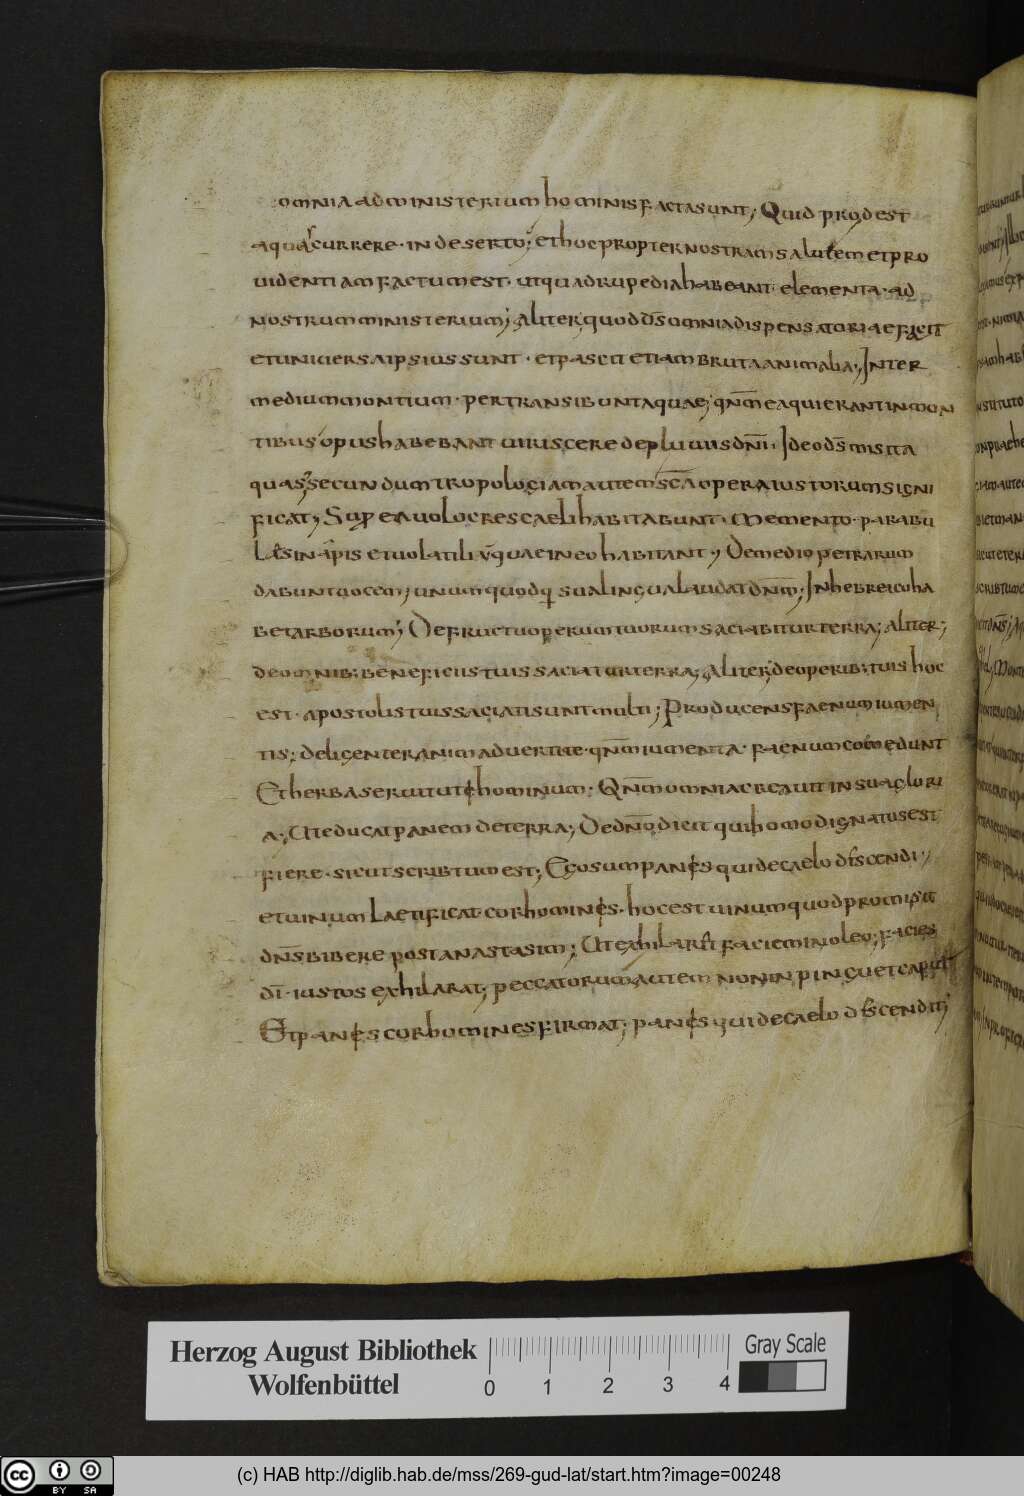 omnia ad ministerium hominis facta sunt; Quid prodest
aquas currere· in deserto; et hoc propter nostram salutem et pro
uidentiam factum est· ut quadrupedia habeant elementa· ad
nostrum ministerium; Aliter; quod ds̄ omnia dispensatoriae
et uniuersa ipsius sunt · et pascit etiam bruta animalia; Inter
medium montium · pertransibunt aquae; qnm̄ ea qui erant in mon
tibus opus habebant uiuiscere de pluuiis dnī· Ideo ds̄ misit a
quas; secundum tropologiam autem sc̄a opera iustorum signi
ficat; Super ea uolocres caeli habitabunt· Memento· parabu
las sinapis et uolatili quae in eo habitant; De medio petrarum
dabunt uocem; unumquodq sua lingua laudat dnm̄; In hebreicu ha
bet arborum; De fructu operum tuorum saciabitur terra; Aliter;
de omnib; beneficiis tuis saciatur terra; Aliter; de operib; tuis hoc
est· apostolis tuis saciati sunt multi; Producens faenum iumen
tis; deligenter animaduertite· qnm̄ iumenta· faenum comedunt
Et herba seruituti hominum; Qnm̄ omnia creauit in sua glori
a; Ut educat panem de terra; De dnō dicit qui homo dignatus est
fiere· sicut scribtum est; Ego sum panis qui de caelo discendi;
et uinum laetificat cor hominis· hoc est uinum quod promisit
dns̄ bibere post anastasim; Ut exhilaret faciem in oleo; facies
dī· iustos exhilarat; peccatorum autem non inpinguet caput
Et panis cor hominis firmat; panis qui de caelo discendit;
Herzog August Bibliothek
Wolfenbüttel
0 1 2 3 4
Gray Scale
(c) HAB http://diglib.hab.de/mss/269-gud-lat/start.htm?image=00248
cc BY SA